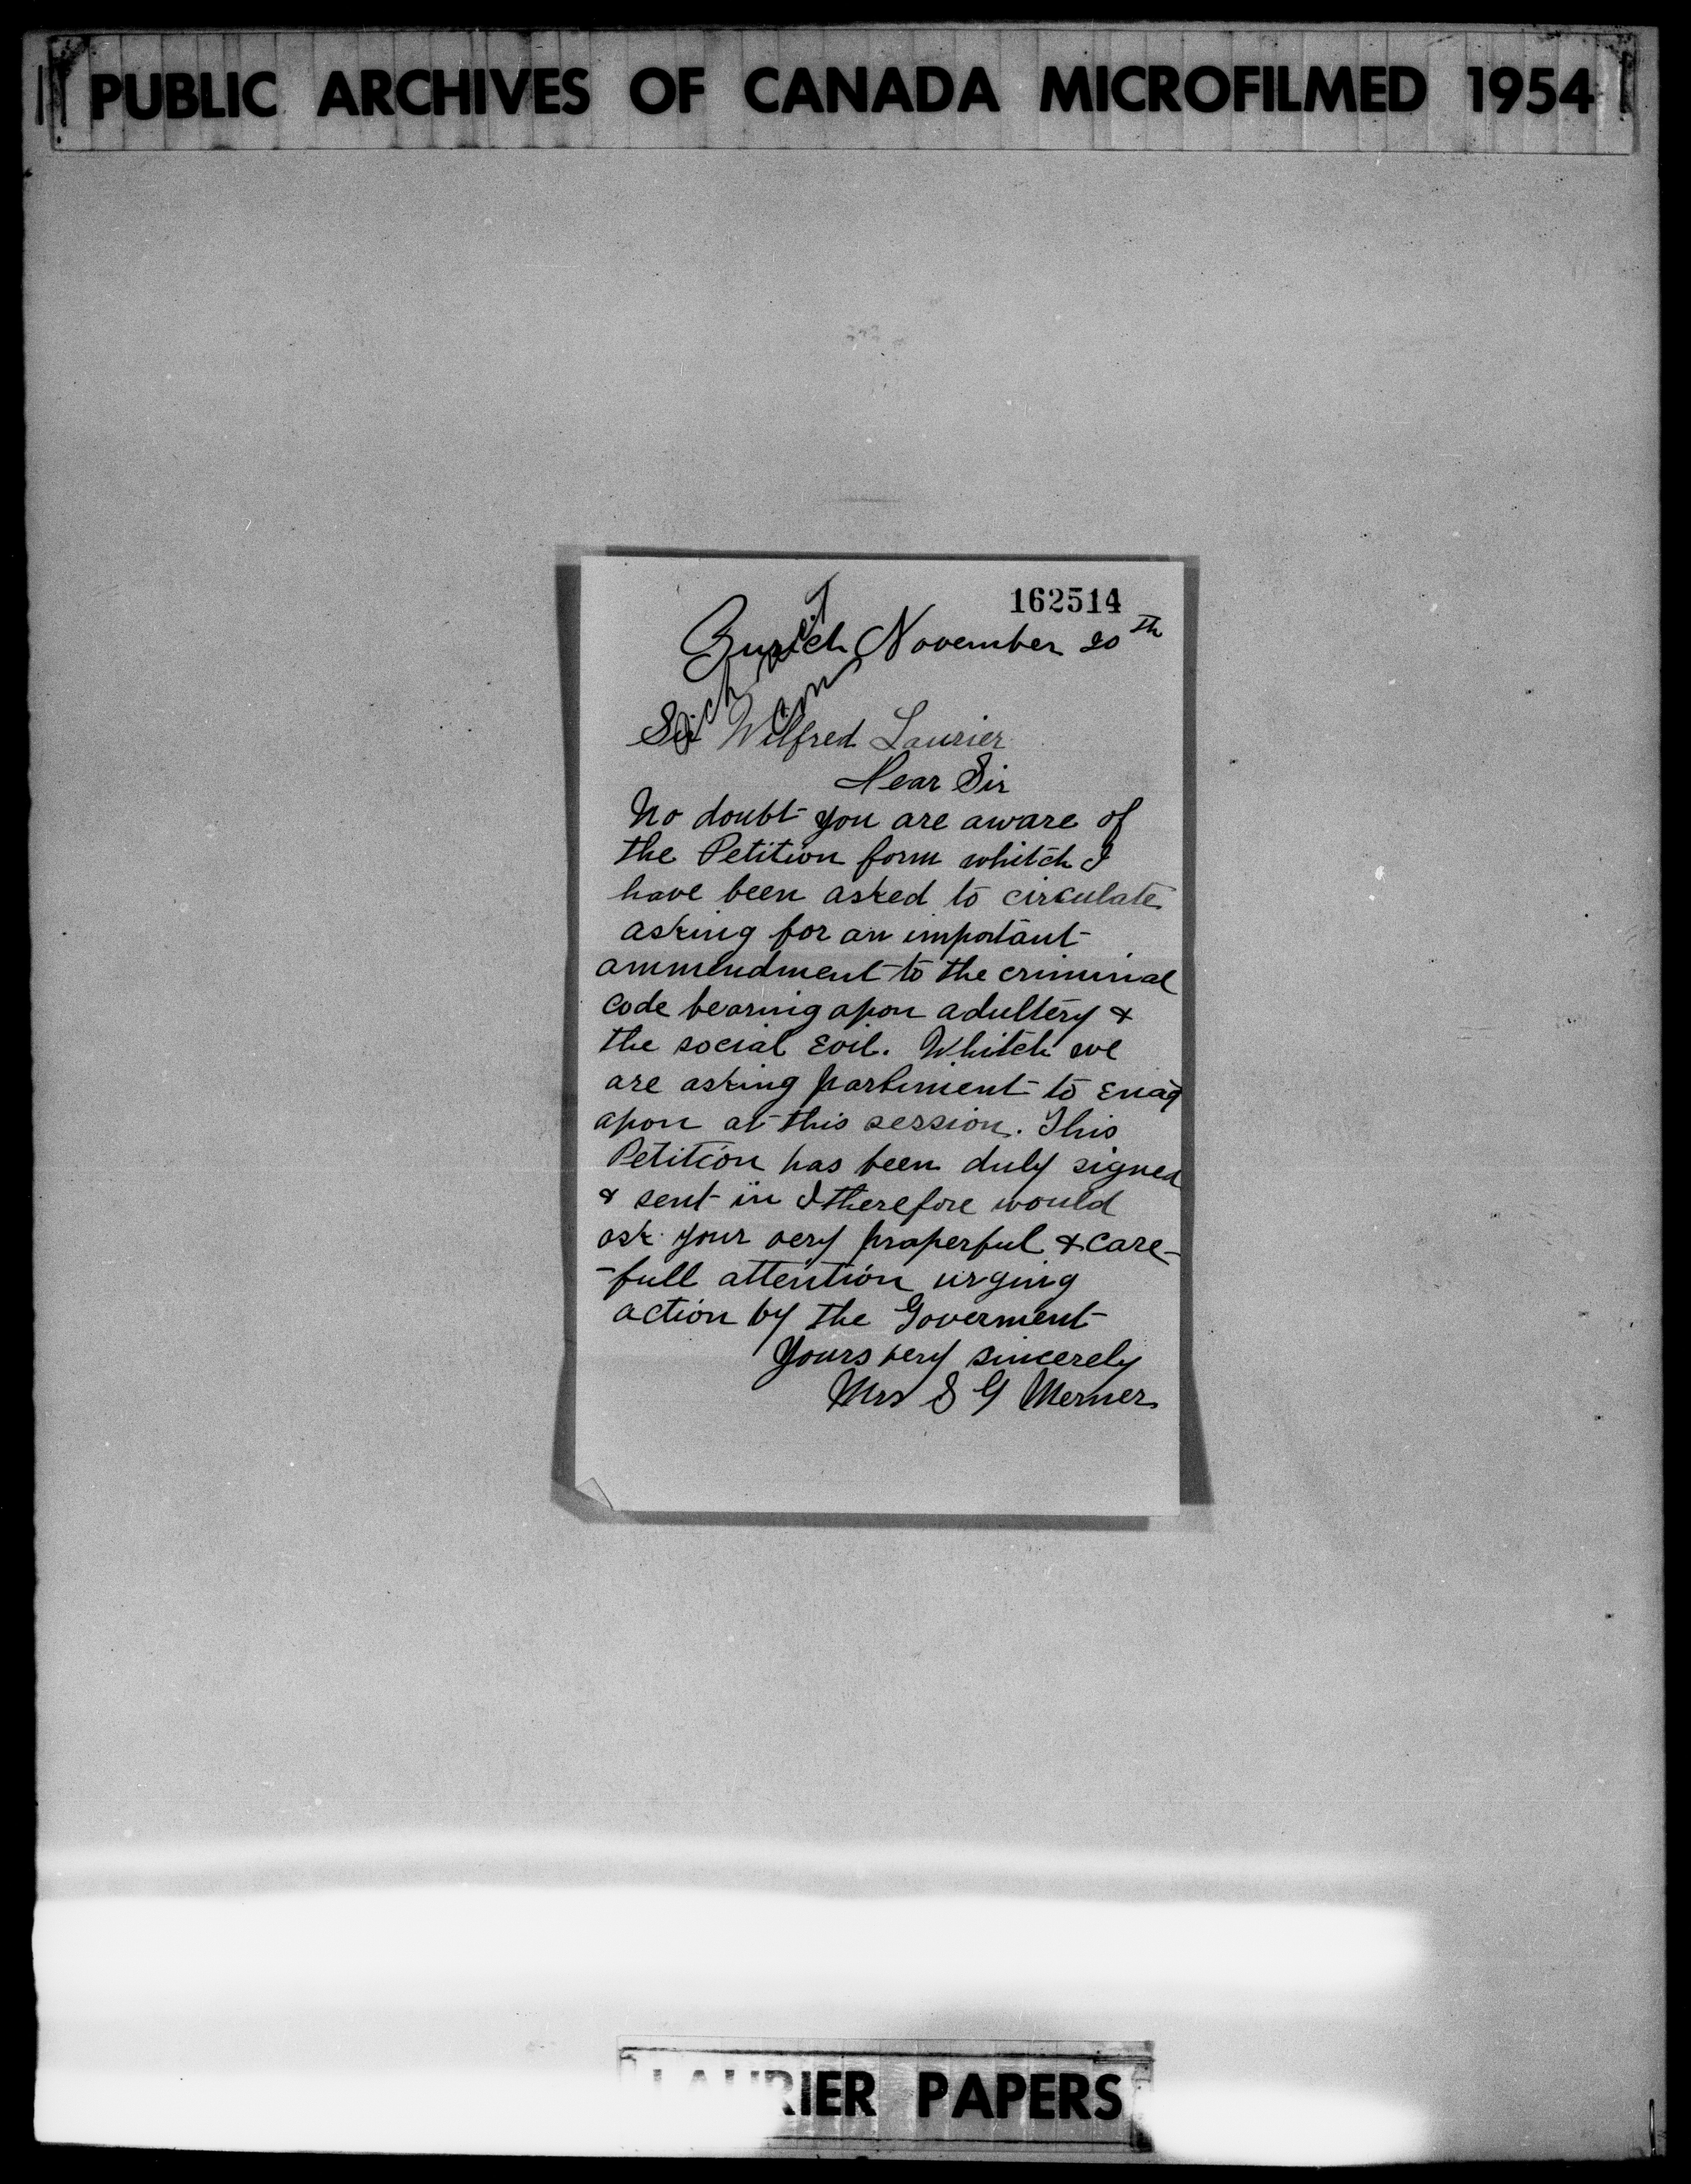 PUBLIC ARCHIVES OF CANADA MICROFILMED 1954
162514
Zurich November 20th
Sir Wilfred Laurier
Dear Sir
No doubt you are aware of
the Petition form whitch I
have been asked to circulate
asking for an important
ammendment to the criminal
code bearing apon adultery &
the social Evil. Whitch we
are asking parliment to Enact
apon at this session. This
Petition has been duly signed
& sent in I therefore would
ask your very praperful & care-
-full attention urging
action by the Goverment
Yours very sincerely
Mrs S G Merner
LAURIER PAPERS